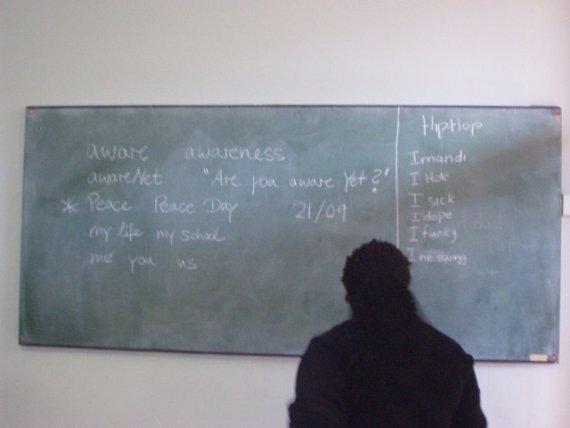 aware awareness
awareNet "Are you aware yet?"
* Peace Peace Day 21/09
my life my school
me you us
HipHop
Imandi
I Hot
I sick
I dope
I funky
I ne swagg